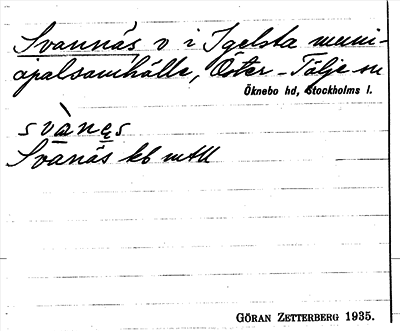 Svannäs v i Igelsta muni-
cipalsamhälle, Öster-Tälje sn
Öknebo hd, Stockholms l.
svànes
Svanäs kb mtll
GÖRAN ZETTERBERG 1935.